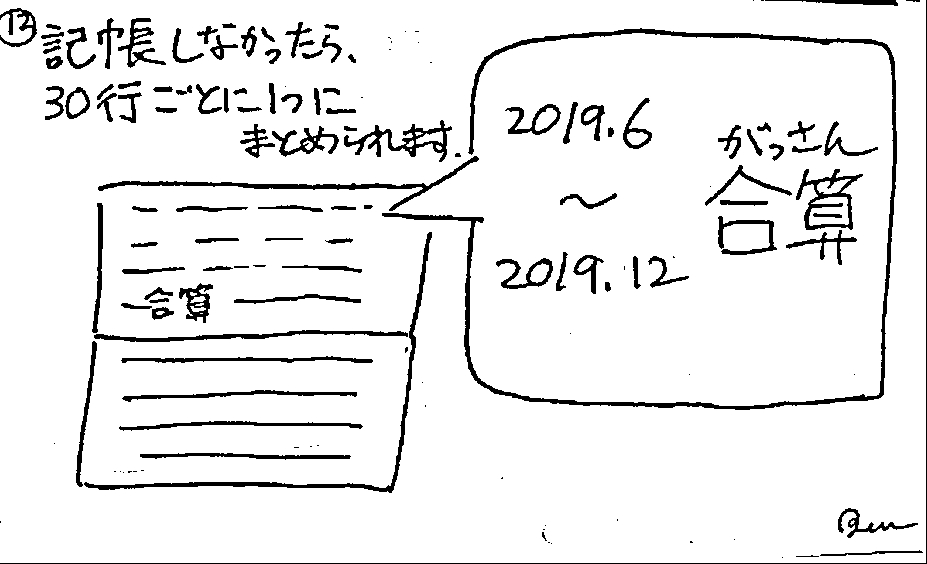 ⑫記帳しなかったら、
30行ごとに1つに
まとめられます.
合算
2019.6
〜
2019.12
がっさん
合算